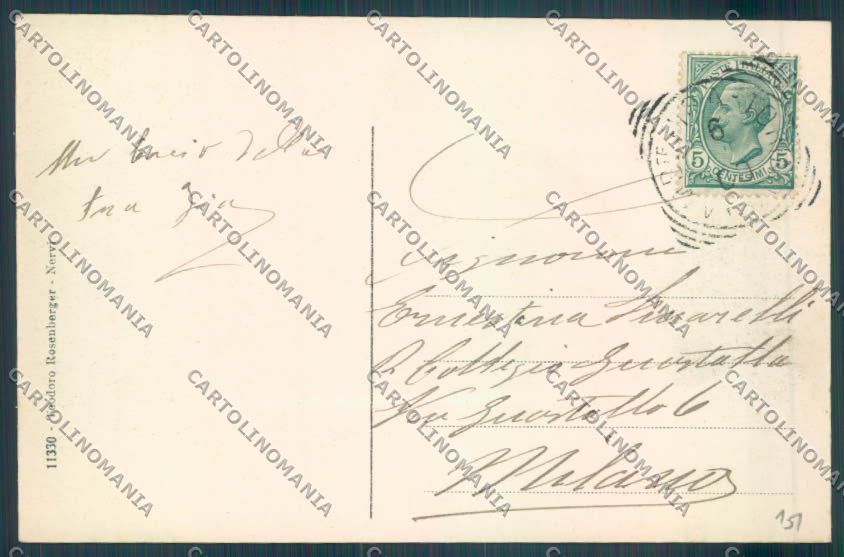 Un bacio della
tua Zia
11330 Teodoro Rosenberger - Nervi
POSTE ITALIANE
5 5
CENTESIMI
Signorina
Ernestina
R Collegio Guastalla
Via Guastalla 6
Milano
151
CARTOLINOMANIA